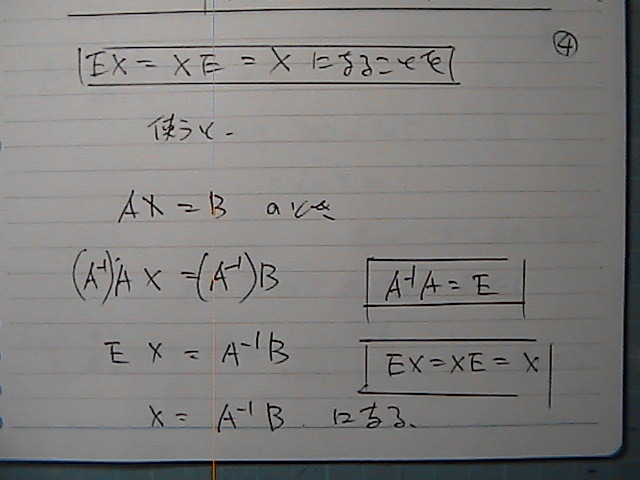 ④
EX = XE = X になることを
使うと.
AX = B のとき
(A⁻¹)A X = (A⁻¹)B
A⁻¹A = E
E X = A⁻¹B
EX = XE = X
X = A⁻¹B. になる.